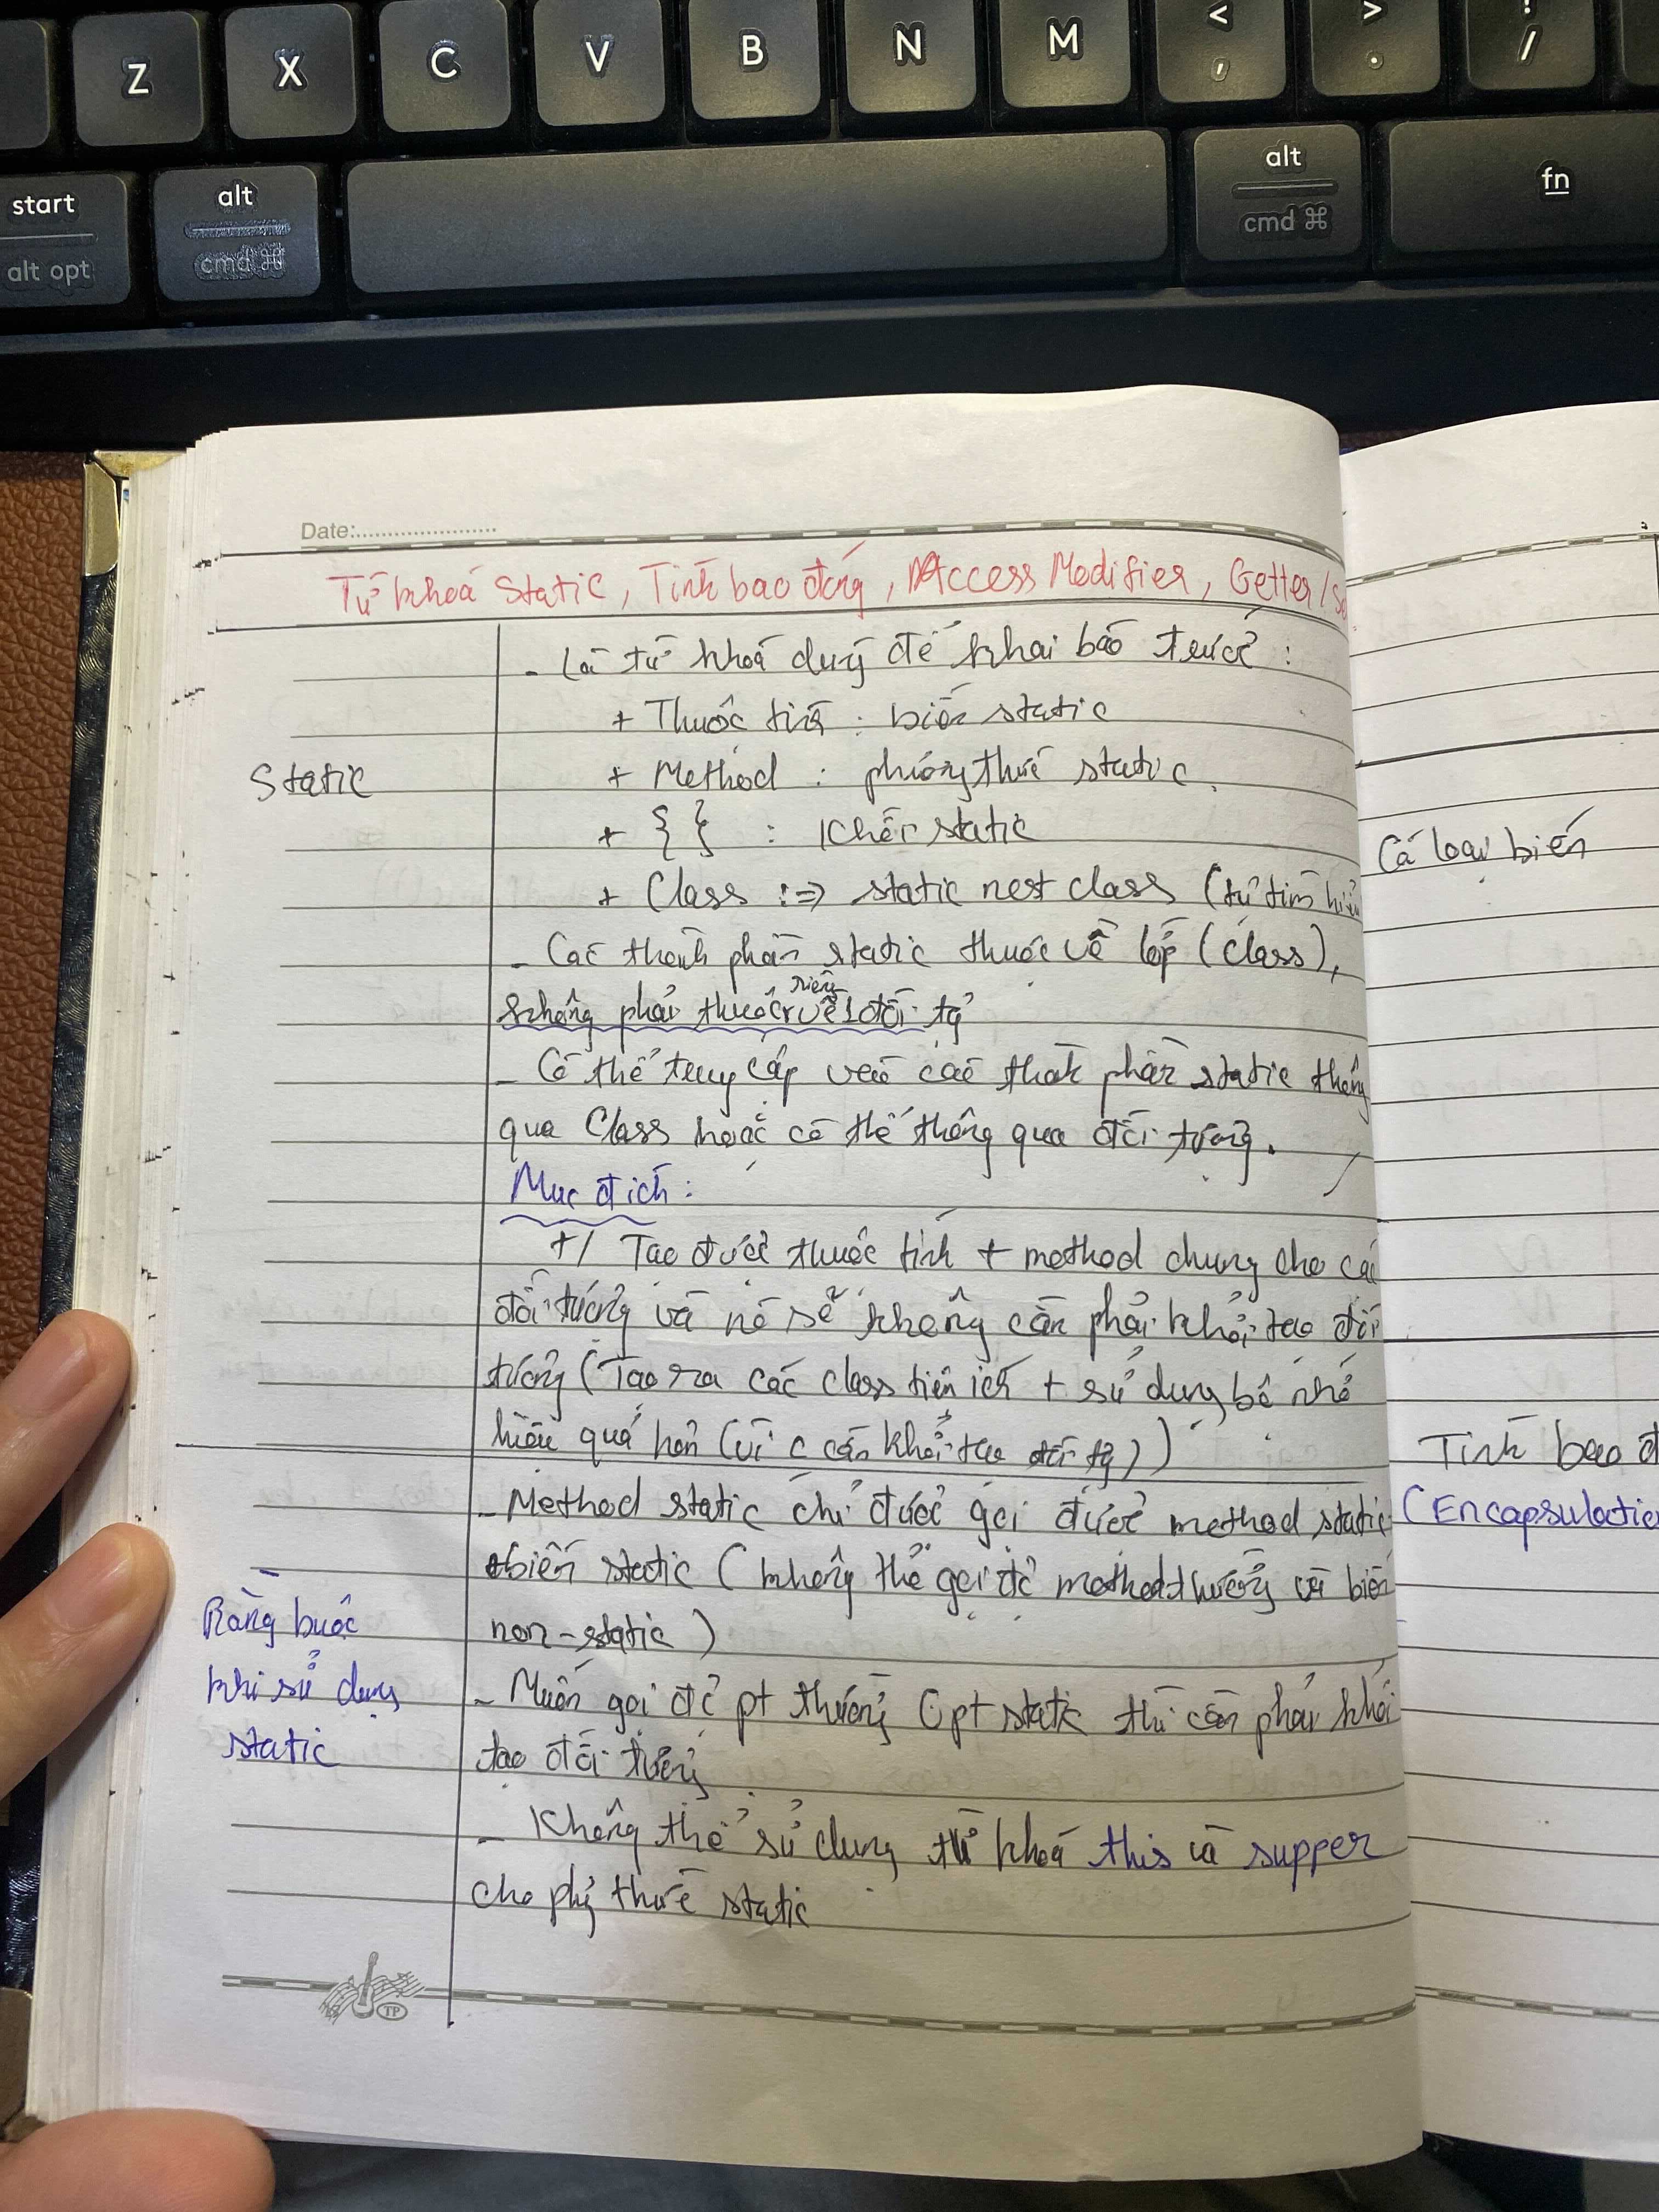 Z X C V B N M < , > . ! /
start alt opt alt cmd ⌘ alt cmd ⌘ fn
Date:
Từ khoá Static, Tính bao đóng, Access Modifier, Getter/S
- Là từ khoá dùng để khai báo trước :
+ Thuộc tính : biến static
Static
+ Method : phương thức static
+ { } : Khối static
+ Class :=> static nest class (tự tìm hiểu
- Các thành phần static thuộc về lớp (Class),
không phải thuộc riêng về 1 đối tg
- Có thể truy cập vào các thành phần static thông
qua Class hoặc có thể thông qua đối tượng.
Mục đích :
+/ Tạo được thuộc tính + method chung cho các
đối tượng và nó sẽ không cần phải khởi tạo đối
tượng (Tạo ra các class tiện ích + sử dụng bộ nhớ
hiệu quả hơn (vì c cần khởi tạo đối tg))
- Method static chỉ được gọi được method static
biến static ( không thể gọi đc method thường và biến
non-static )
Ràng buộc
khi sử dụng
static
- Muốn gọi đc pt thường ở pt static thì cần phải khởi
tạo đối tượng
- Không thể sử dụng từ khoá this và supper
cho phg thức static
TP
Các loại biến
Tính bao đ
(Encapsulatio